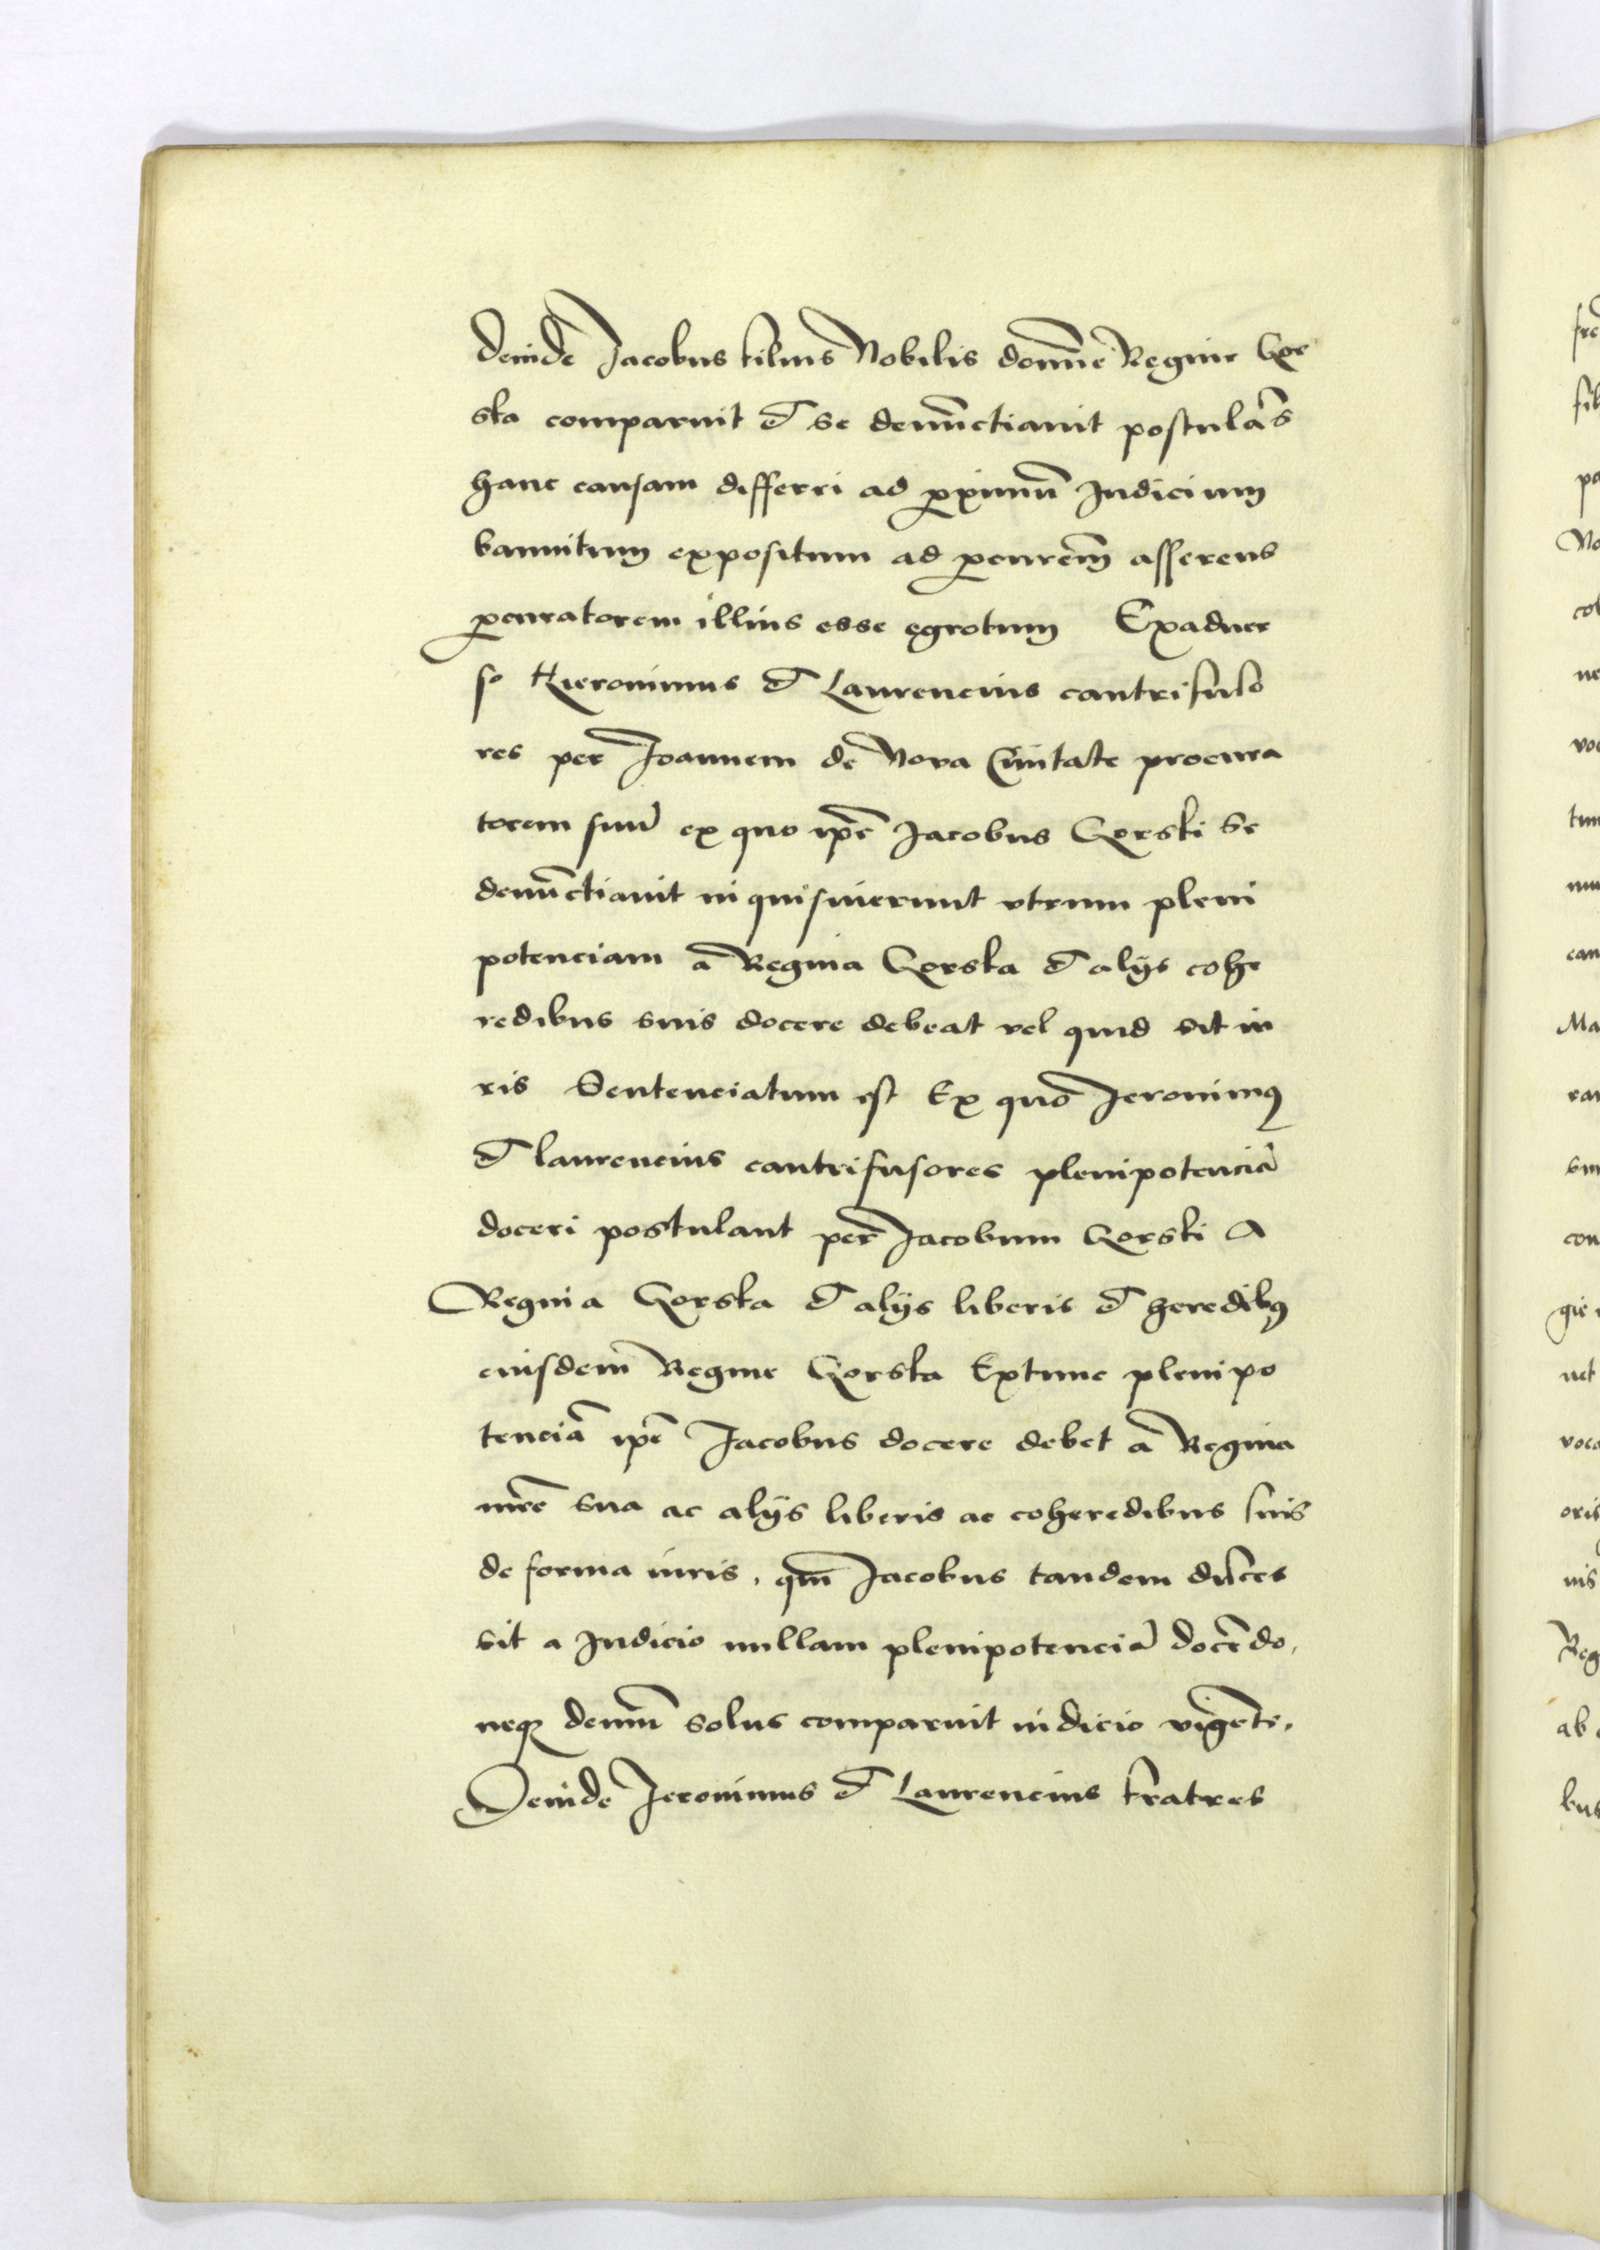 Deinde Jacobus filius Nobilis domine Regine Gor
ska comparuit et se denunctiauit postulās
hanc causam differri ad ꝓximū Iudicium
bannitum expositum ad ꝓcurem̄ asserens
ꝓcuratorem illius esse egrotum Exaduer
so Hieronimus et Laurencius cantrifuso
res per Joannem de Noua Ciuitate procura
torem suū ex quo ip̄e Jacobus Gorski se
denūctiauit inquisiuerunt vtrum pleni
potenciam a Regina Gorska et alÿs cohe
redibus suis docere debeat vel quid sit iu
ris Sentenciatum est Ex quo Jeronimꝰ
et laurencius cantrifusores plenipotenciā
doceri postulant per Jacobum Gorski A
Regina Gorska et alÿs liberis et heredibꝰ
eiusdem Regine Gorska Extunc plenipo
tenciā ip̄e Jacobus docere debet a Regina
mr̄e sua ac alÿs liberis ac coheredibus suis
de forma iuris, qm̄ Jacobus tandem disces
sit a Iudicio nullam plenipotenciā docēdo,
neqꝫ demū solus comparuit iudicio vigēte.
Deinde Jeronimus et Laurencius fratres